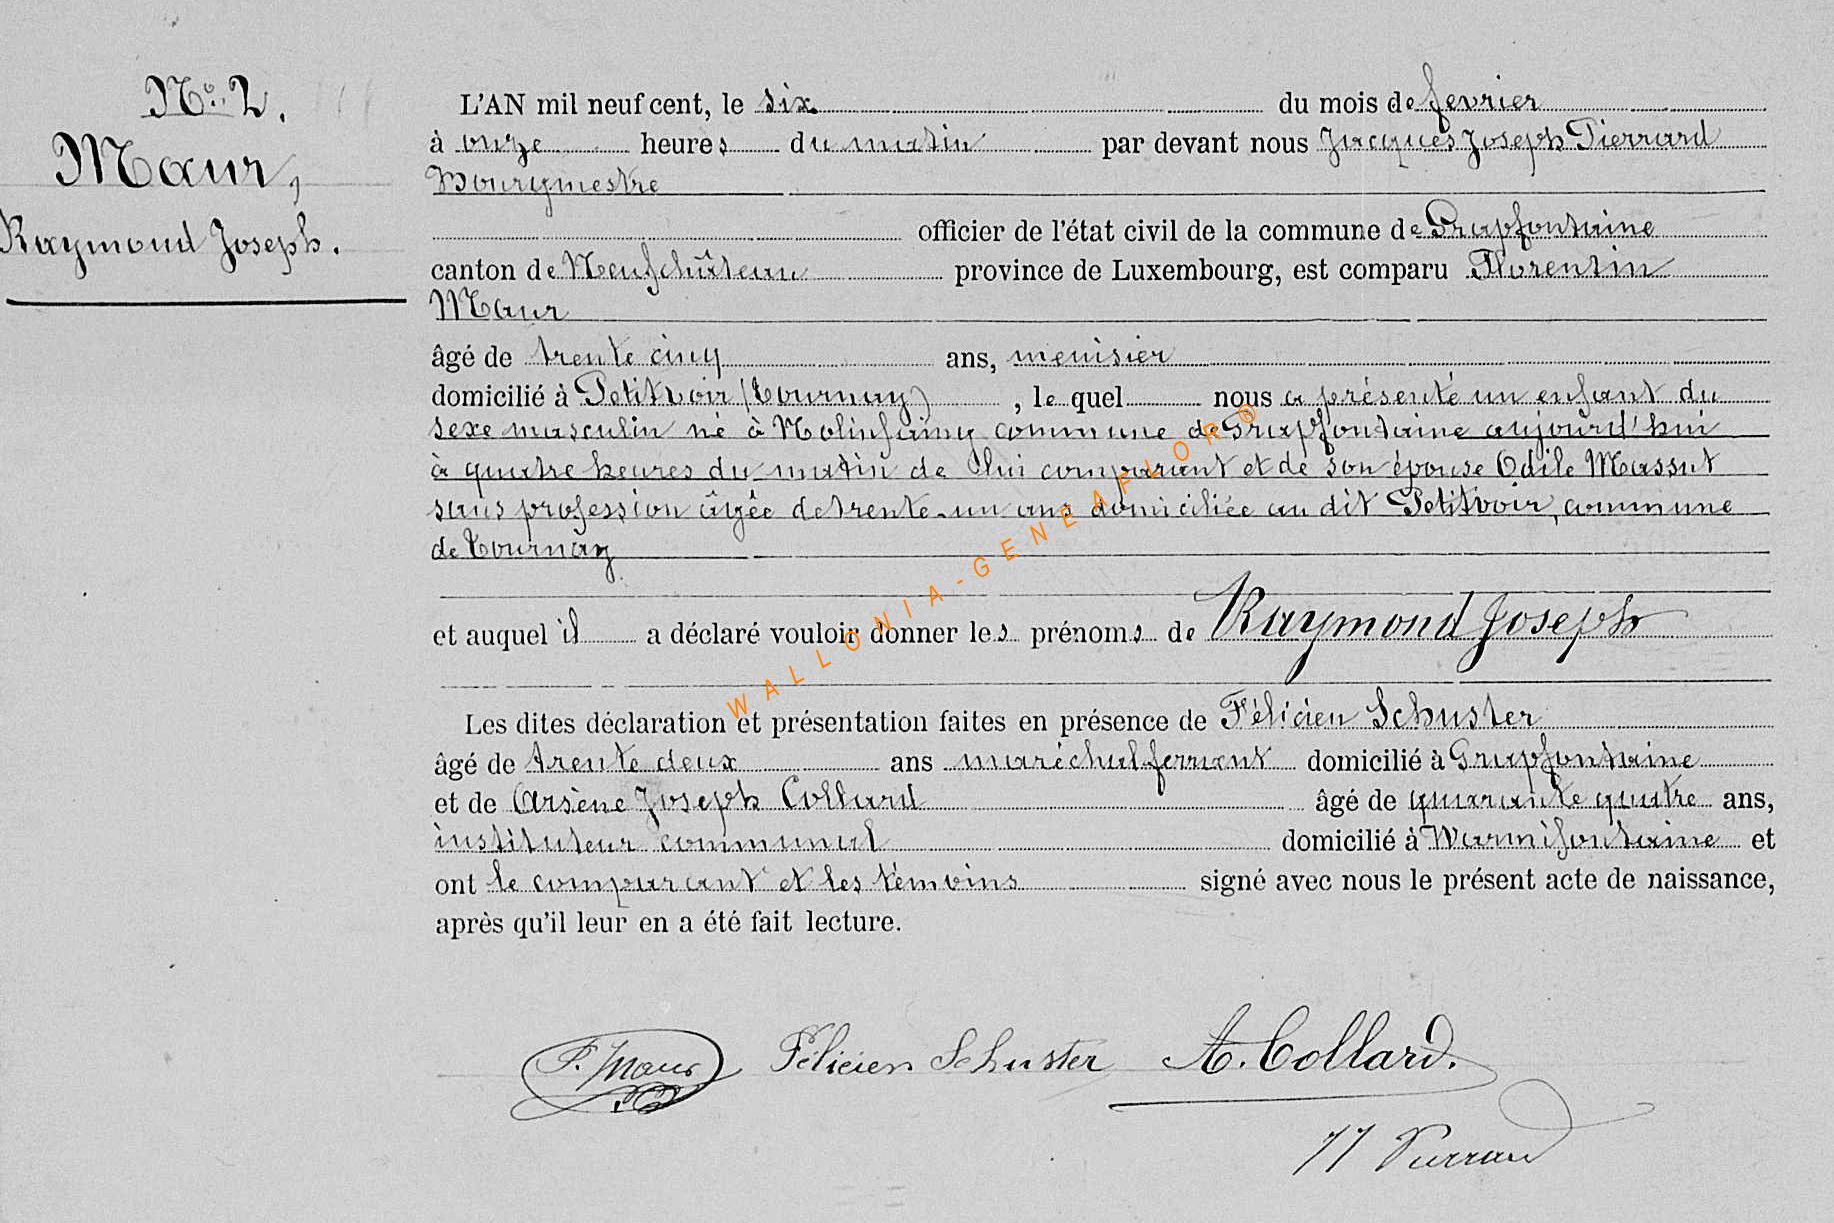 N° 2.
Maur,
Raymond Joseph.
L'AN mil neuf cent, le six du mois de fevrier
à onze heures du matin par devant nous Jacques Joseph Pierrard
Bourgmestre
officier de l'état civil de la commune de Grapfontaine
canton de Neufchâteau province de Luxembourg, est comparu Florentin
Maur
âgé de trente cinq ans, menisier
domicilié à Petitvoir (Tournay), le quel nous a présenté un enfant du
sexe masculin né à Molinfaing commune de Grapfontaine aujourd'hui
à quatre heures du matin de lui comparant et de son épouse Odile Massut
sans profession âgée de trente-un ans domiciliée au dit Petitvoir, commune
de Tournay
et auquel il a déclaré vouloir donner les prénoms de Raymond Joseph
Les dites déclaration et présentation faites en présence de Félicien Schuster
âgé de trente deux ans maréchal ferrant domicilié à Grapfontaine
et de Arsène Joseph Collard âgé de quarante quatre ans,
instituteur communal domicilié à Warmifontaine et
ont le comparant et les témoins signé avec nous le présent acte de naissance,
après qu'il leur en a été fait lecture.
F. Maur Félicien Schuster A. Collard.
JJ Pierrard
WALLONIA-GENEAFLOR®